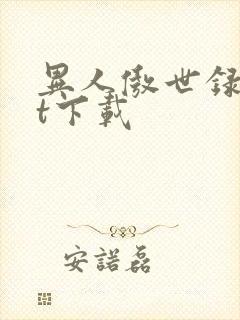 異人傲世録
t下載
安諾磊